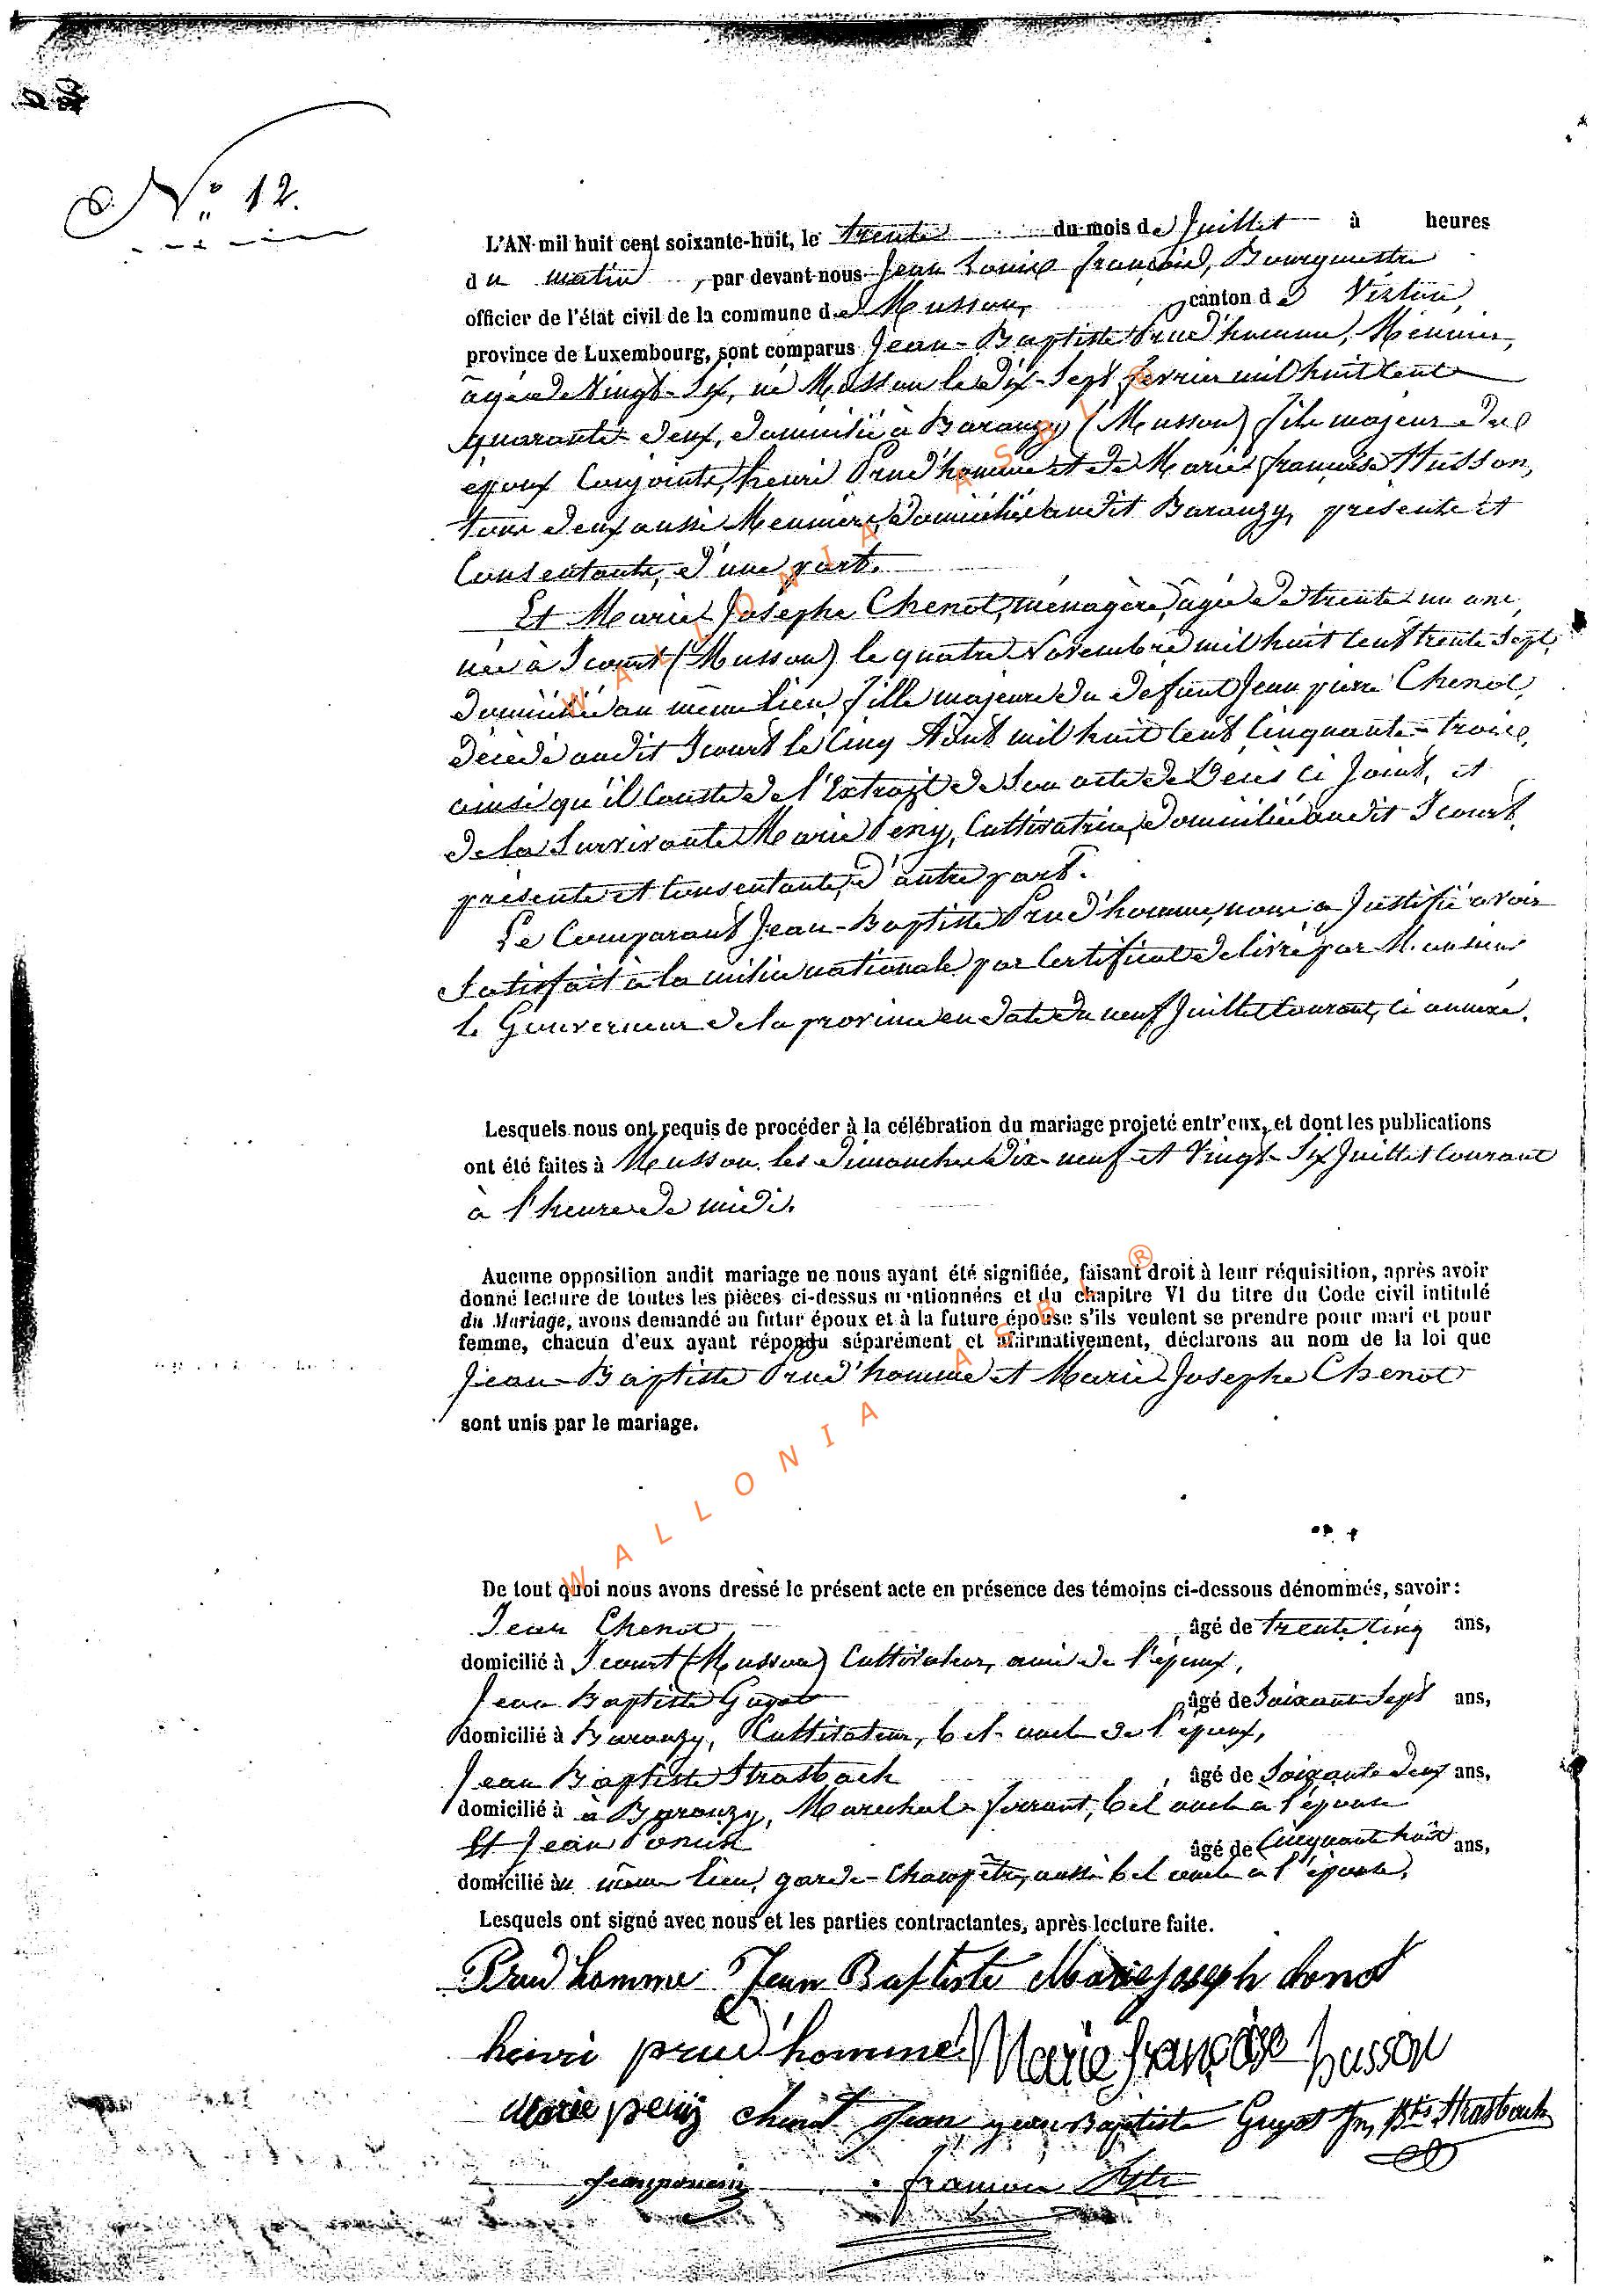 N° 12.
L'AN mil huit cent soixante-huit, le trente du mois de Juillet à heures
du matin, par devant nous Jean Louis françois, Bourgmestre
officier de l'état civil de la commune de Musson, canton de Virton,
province de Luxembourg, sont comparus Jean-Baptiste Prud'homme, Meunier,
âgé de Vingt-Six, né Musson le dix-Sept fevrier mil huit cent
quarante-deux, domicilié à Baranzy (Musson) fils majeur des
époux Conjoints, henri Prud'homme et de Marie françoise Husson,
tous deux aussi Meuniers, domiciliés audit Baranzy, présents et
Consentants, d'une part.
Et Marie Josephe Chenot, ménagère, âgée de trente un ans,
née à Icourt (Musson) le quatre Novembre mil huit cent trente Sept,
domiciliée au même lieu, fille majeure du defunt Jean pierre Chenot,
décédé audit Icourt le Cinq Août mil huit Cent Cinquante-trois,
ainsi qu'il Conste de l'Extrait de Son acte de Décès Ci Joint, et
de la Survivante Marie Peny, Cultivatrice, domiciliée audit Icourt,
présente et Consentante, d'autre part.
Le Comparant Jean-Baptiste Prud'homme, nous a Justifié avoir
Satisfait à la milice nationale par Certificat delivré par Monsieur
le Gouverneur de la province en date du neuf Juillet Courant, ci annexé.
Lesquels nous ont requis de procéder à la célébration du mariage projeté entr'eux, et dont les publications
ont été faites à Musson les dimanches Dix-neuf et Vingt-Six Juillet Courant
à l'heure de midi.
Aucune opposition audit mariage ne nous ayant été signifiée, faisant droit à leur réquisition, après avoir
donné lecture de toutes les pièces ci-dessus mentionnées et du chapitre VI du titre du Code civil intitulé
du Mariage, avons demandé au futur époux et à la future épouse s'ils veulent se prendre pour mari et pour
femme, chacun d'eux ayant répondu séparément et affirmativement, déclarons au nom de la loi que
Jean-Baptiste Prud'homme et Marie Josephe Chenot
sont unis par le mariage.
De tout quoi nous avons dressé le présent acte en présence des témoins ci-dessous dénommés, savoir:
Jean Chenot, âgé de trente Cinq ans,
domicilié à Icourt (Musson) Cultivateur, ami de l'époux,
Jean Baptiste Guyot âgé de Soixante Sept ans,
domicilié à Baranzy, Cultivateur, bel-oncle de l'époux,
Jean Baptiste Strasbach, âgé de Soixante Deux ans,
domicilié à à Baranzy, Marechal-ferrant, bel oncle a l'épouse
Et Jean Ponsin âgé de Cinquante huit ans,
domicilié au même lieu, garde-Champêtre, aussi bel oncle a l'épouse,
Lesquels ont signé avec nous et les parties contractantes, après lecture faite.
Prud homme Jean Baptiste Marie joseph chenot
henri prud'homme Marie françoise husson
Marie peny chenot Jean jean Baptiste Guyot Jn Bte Strasbach
françois
WALLONIA ASBL ®
WALLONIA ASBL ®